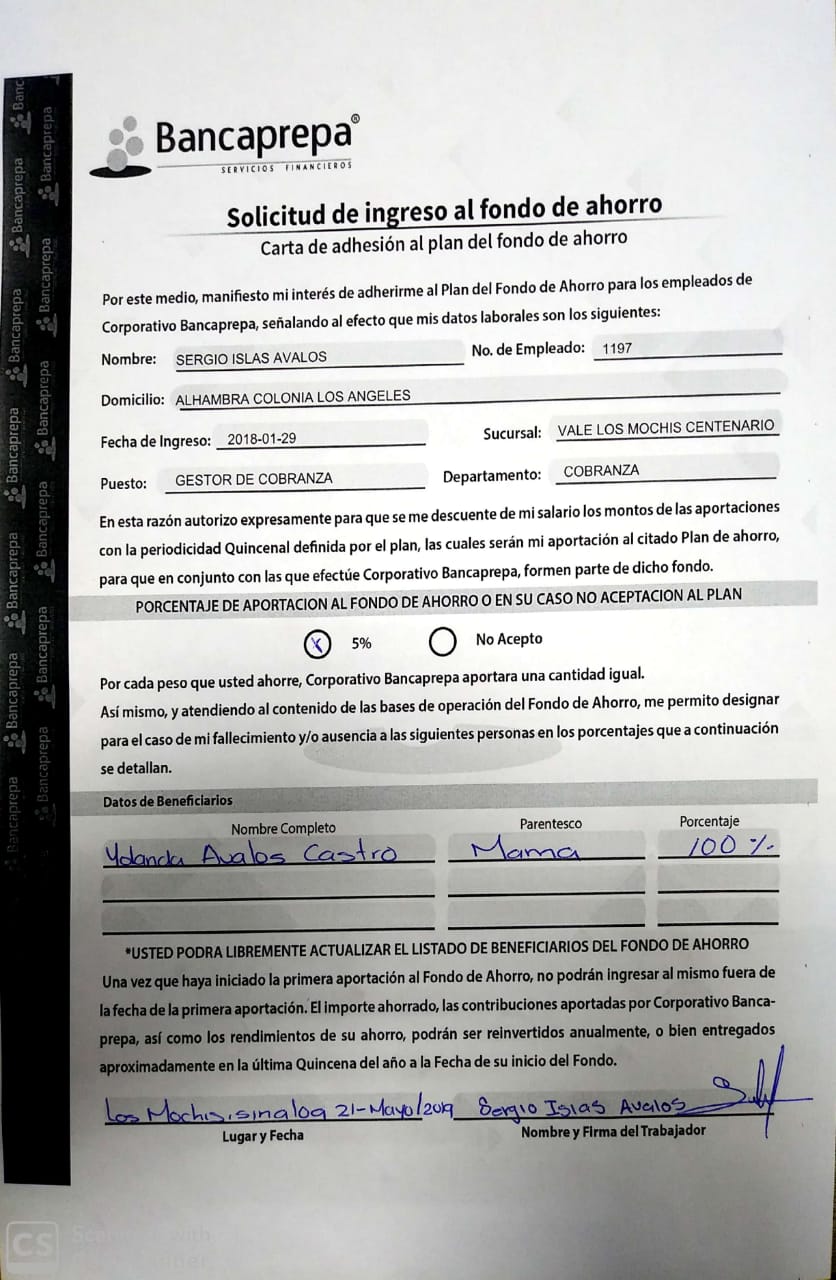 Bancaprepa®
SERVICIOS FINANCIEROS
Solicitud de ingreso al fondo de ahorro
Carta de adhesión al plan del fondo de ahorro
Por este medio, manifiesto mi interés de adherirme al Plan del Fondo de Ahorro para los empleados de
Corporativo Bancaprepa, señalando al efecto que mis datos laborales son los siguientes:
Nombre: SERGIO ISLAS AVALOS No. de Empleado: 1197
Domicilio: ALHAMBRA COLONIA LOS ANGELES
Fecha de Ingreso: 2018-01-29 Sucursal: VALE LOS MOCHIS CENTENARIO
Puesto: GESTOR DE COBRANZA Departamento: COBRANZA
En esta razón autorizo expresamente para que se me descuente de mi salario los montos de las aportaciones
con la periodicidad Quincenal definida por el plan, las cuales serán mi aportación al citado Plan de ahorro,
para que en conjunto con las que efectúe Corporativo Bancaprepa, formen parte de dicho fondo.
PORCENTAJE DE APORTACION AL FONDO DE AHORRO O EN SU CASO NO ACEPTACION AL PLAN
X 5% No Acepto
Por cada peso que usted ahorre, Corporativo Bancaprepa aportara una cantidad igual.
Así mismo, y atendiendo al contenido de las bases de operación del Fondo de Ahorro, me permito designar
para el caso de mi fallecimiento y/o ausencia a las siguientes personas en los porcentajes que a continuación
se detallan.
Datos de Beneficiarios
Nombre Completo Parentesco Porcentaje
Yolanda Avalos Castro Mama 100 %
*USTED PODRA LIBREMENTE ACTUALIZAR EL LISTADO DE BENEFICIARIOS DEL FONDO DE AHORRO
Una vez que haya iniciado la primera aportación al Fondo de Ahorro, no podrán ingresar al mismo fuera de
la fecha de la primera aportación. El importe ahorrado, las contribuciones aportadas por Corporativo Banca-
prepa, así como los rendimientos de su ahorro, podrán ser reinvertidos anualmente, o bien entregados
aproximadamente en la última Quincena del año a la Fecha de su inicio del Fondo.
Los Mochis, sinaloa 21-Mayo/2019 Sergio Islas Avalos
Lugar y Fecha Nombre y Firma del Trabajador
CS Scanned with